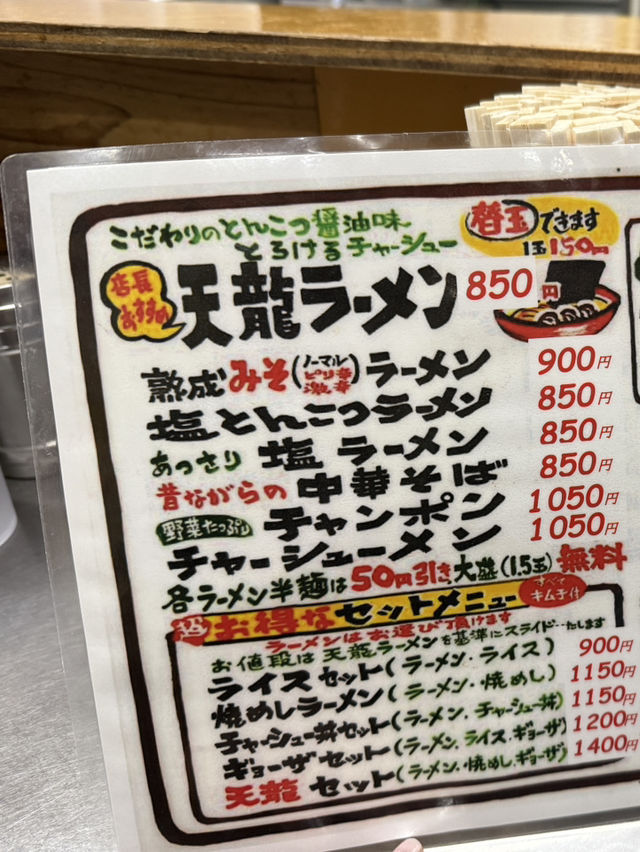 こだわりのとんこつ醤油味
とろけるチャーシュー
替玉できます
1玉150円
店長おすすめ
天龍ラーメン 850円
熟成みそ(ノーマル ピリ辛 激辛)ラーメン 900円
塩とんこつラーメン 850円
あっさり 塩ラーメン 850円
昔ながらの 中華そば 850円
野菜たっぷり チャンポン 1050円
チャーシューメン 1050円
各ラーメン半麺は50円引き、大盛(1.5玉)無料
お得なセットメニュー すべてキムチ付
ラーメンはお選び頂けます
お値段は天龍ラーメンを基準にスライドいたします
ライスセット(ラーメン・ライス) 900円
焼めしラーメン(ラーメン・焼めし) 1150円
チャーシュー丼セット(ラーメン、チャーシュー丼) 1150円
ギョーザセット(ラーメン、ライス、ギョーザ) 1200円
天龍セット(ラーメン・焼めし、ギョーザ) 1400円